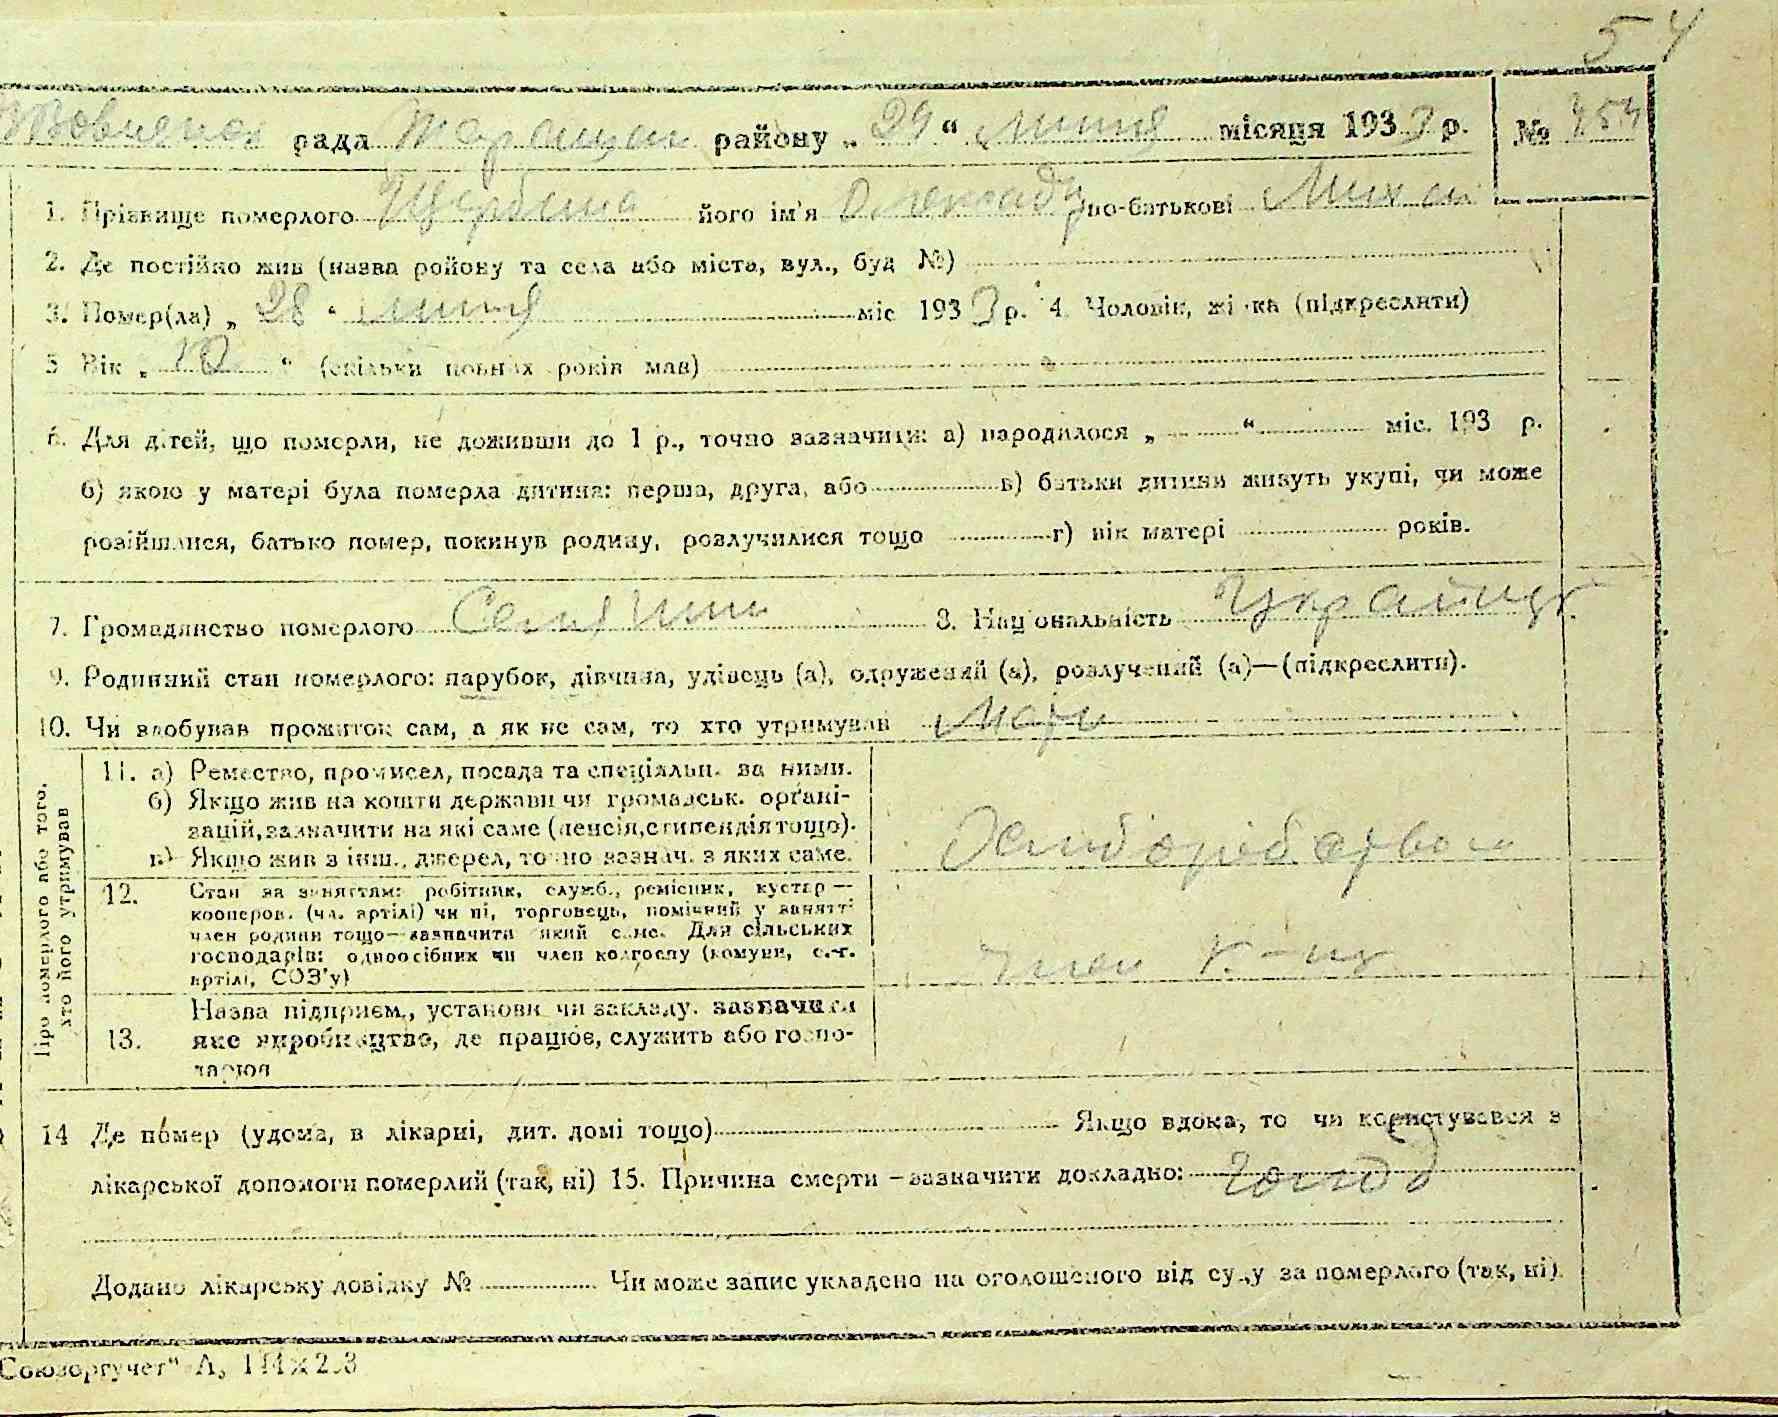 54
рада Таращан району „ 29 “ липня місяця 1933 р. № 454
1. Прізвище померлого Щербина його ім'я Олександр по-батькові Михай
2. Де постійно жив (назва ройону та села або міста, вул., буд №)
3. Помер(ла) „ 28 “ липня міс 1933 р. 4. Чоловік, жінка (підкреслити)
5 Вік „ 10 “ (скільки повних років мав)
6. Для дітей, що померли, не доживши до 1 р., точно зазначити: а) народилося „ “ міс. 193 р.
б) якою у матері була померла дитина: перша, друга, або в) батьки дитини живуть укупі, чи може
розійшлися, батько помер, покинув родину, розлучилися тощо г) вік матері років.
7. Громадянство померлого Селянин 8. Національність Українець
9. Родинний стан померлого: парубок, дівчина, удівець (а), одружений (а), розлучений (а)—(підкреслити).
10. Чи здобував прожиток сам, а як не сам, то хто утримував Мати
Про померлого або того, хто його утримував
11. а) Ремество, промисел, посада та спеціяльн. за ними.
б) Якщо жив на кошти держави чи громадськ. орґані-
зацій, зазначити на які саме (пенсія, стипендія тощо).
в) Якщо жив з інш., джерел, точно зазнач. з яких саме.
12. Стан за заняттям: робітник, служб., ремісник, кустар —
кооперов. (чл. артілі) чи ні, торговець, помічний у занятті
член родини тощо—зазначити який саме. Для сільських
господарів: одноосібник чи член колгоспу (комуни, с.-г.
артілі, СОЗ'у)
член к-пу
13. Назва підприєм., установи чи закладу. зазначити
яке виробництво, де працює, служить або госпо-
дарюя
14 Де помер (удома, в лікарні, дит. домі тощо) Якщо вдома, то чи користувався з
лікарської допомоги померлий (так, ні) 15. Причина смерти – зазначити докладно: голод
Додано лікарську довідку № Чи може запис укладено на оголошеного від суду за померлого (так, ні).
Союзоргучет“ А, 114×2.3